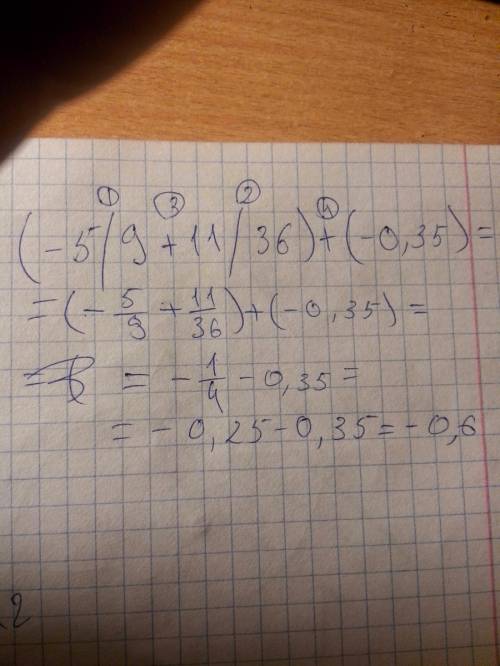 ① ③ ② ④
(-5/9+11/36)+(-0,35)=
=(-5/9+11/36)+(-0,35)=
= = -1/4-0,35=
= -0,25-0,35=-0,6
2